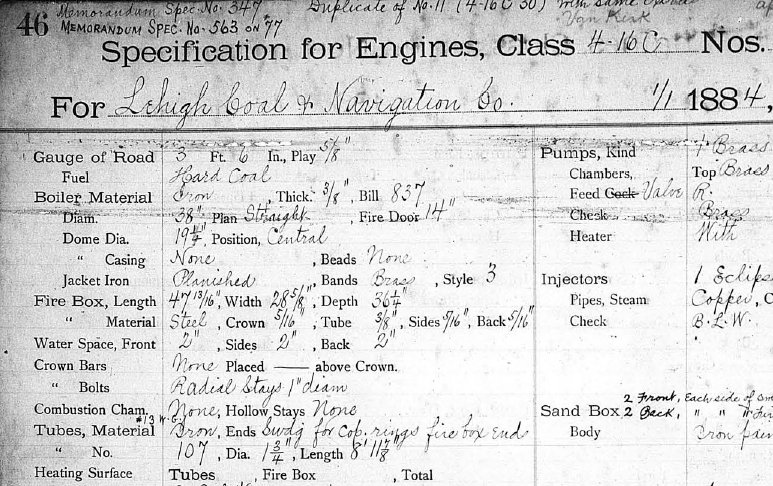 46
Memorandum Spec. No. 347 Duplicate of No. 11 (4-16 C 50) with same
MEMORANDUM SPEC. No. 563 ON "77 Van Kirk
Specification for Engines, Class 4-16 C Nos.
For Lehigh Coal & Navigation Co. 1/1 1884,
Gauge of Road 3 Ft. 6 In., Play 5/8"
Fuel Hard Coal
Boiler Material Iron, Thick. 3/8", Bill 837
Diam. 38", Plan Straight, Fire Door 14"
Dome Dia. 19 1/4", Position, Central
" Casing None, Beads None
Jacket Iron Planished, Bands Brass, Style 3
Fire Box, Length 47 13/16", Width 28 5/8", Depth 36 1/4"
" Material Steel, Crown 5/16", Tube 5/8", Sides 5/16", Back 5/16"
Water Space, Front 2", Sides 2", Back 2"
Crown Bars None Placed — above Crown.
" Bolts Radial Stays 1" diam
Combustion Cham. None, Hollow Stays None
#13 W.G.
Tubes, Material Iron, Ends Swdg for Cop. rings fire box ends
" No. 107, Dia. 1 3/4", Length 8' 11 7/8
Heating Surface Tubes , Fire Box , Total
Pumps, Kind 1 Brass
Chambers, Top Brass
Feed Cock Valve R.
Check Brass
Heater With
Injectors 1 Eclipse
Pipes, Steam Copper, C
Check B. L. W.
2 Front, Each side of
Sand Box 2 Back, " " "
Body Iron